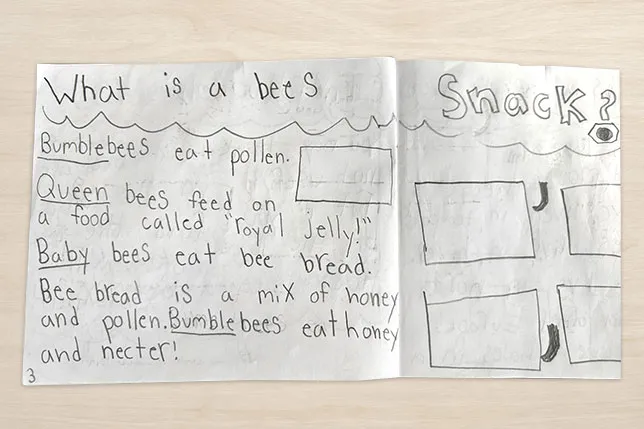 What is a bees Snack?
Bumblebees eat pollen.
Queen bees feed on
a food called "royal jelly!"
Baby bees eat bee bread.
Bee bread is a mix of honey
and pollen. Bumblebees eat honey
and necter!
3